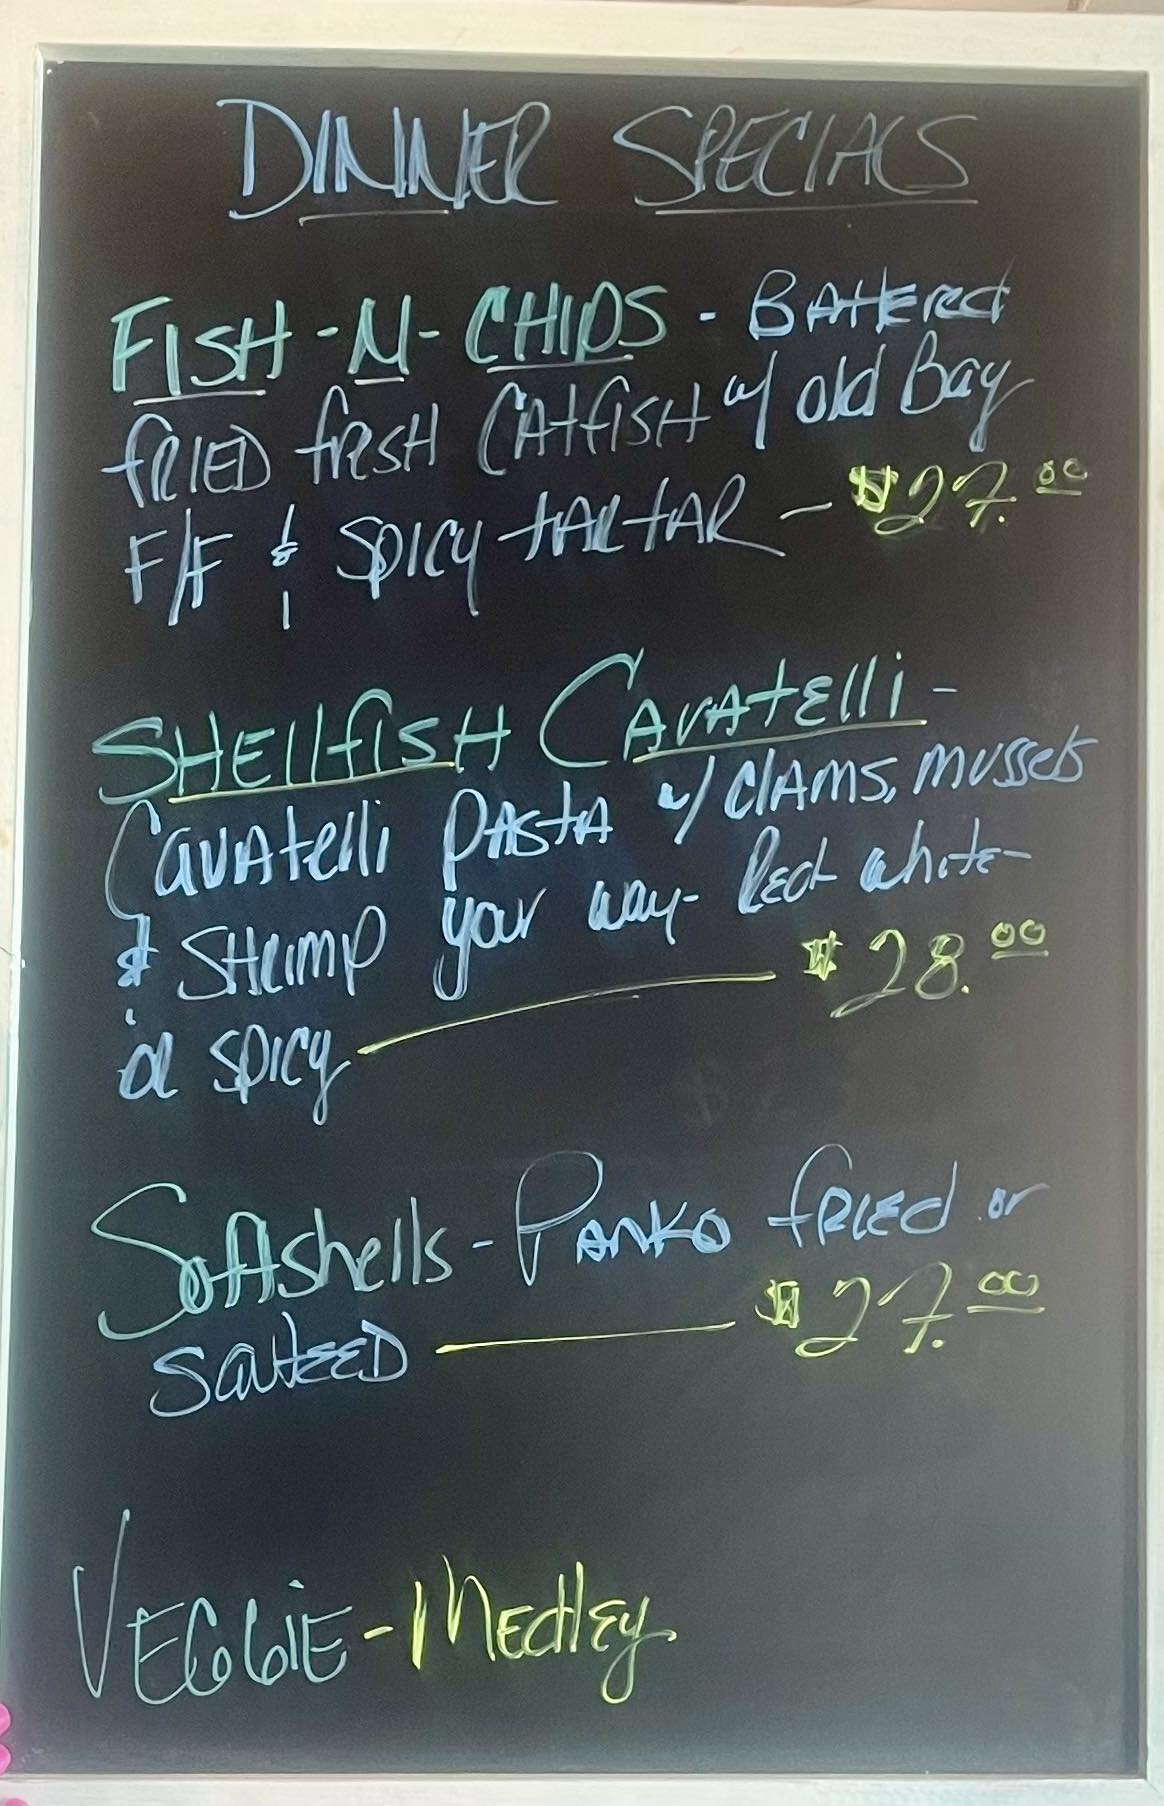 DINNER SPECIALS
FISH-N-CHIPS - BATTERED
FRIED FRESH CATFISH w/ old Bay
F/F & SPICY TARTAR - $27.00
SHELLFISH CAVATELLI -
CAVATELLI PASTA w/ CLAMS, MUSSELS
& SHRIMP your way - Red white -
OR SPICY $28.00
Softshells - PANKO FRIED or
SAUTEED $27.00
VEGGIE - MEDLEY